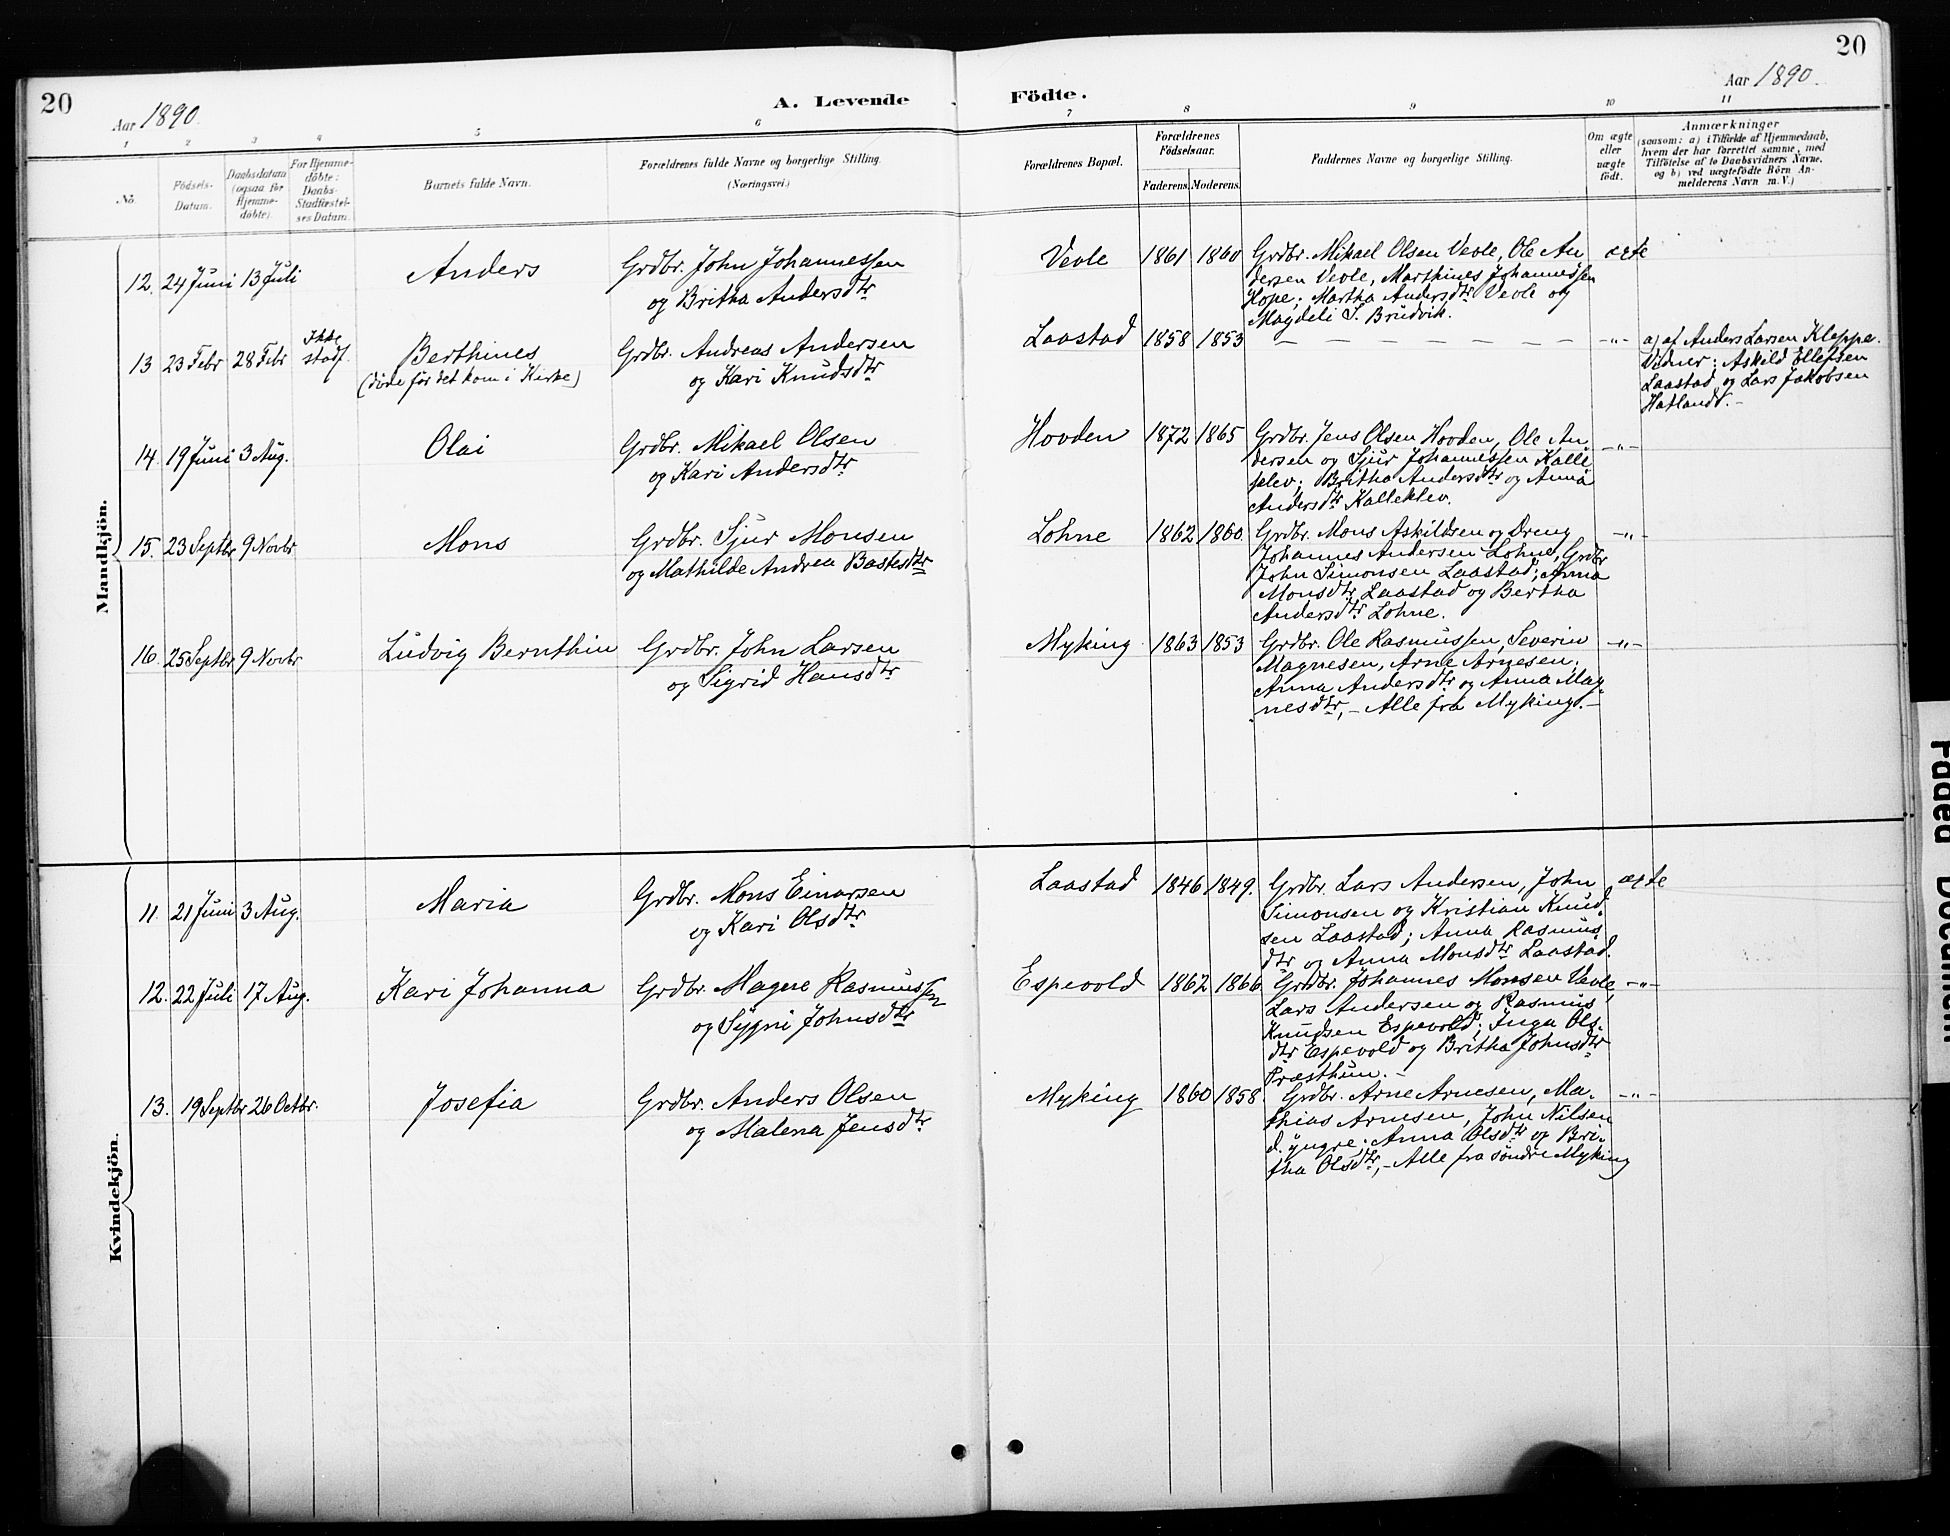 20
Aar 1890.
A. Levende
Fødte.
Aar 1890.
20
1
2
3
4
5
6
7
8
9
10
11
No.
Fødsels-
Datum.
Daabsdatum
(ogsaa for
Hjemme-
døbte).
For Hjemme-
døbte:
Daabs-
Stadfæstel-
ses Datum.
Barnets fulde Navn.
Forældrenes fulde Navne og borgerlige Stilling.
(Næringsvei.)
Forældrenes Bopæl.
Forældrenes
Fødselsaar.
Faderens.
Moderens.
Faddernes Navne og borgerlige Stilling.
Om ægte
eller
uægte
født.
Anmærkninger
(saasom: a) i Tilfælde af Hjemmedaab,
hvem der har forrettet samme, med
Tilføielse af to Daabsvidners Navne.
og b) ved uægtefødte Børn An-
melderens Navn m. V.)
Mandkjön.
12. 24 Juni 13 Juli
Anders
Grdbr. John Johannessen
og Britha Andersdtr
Vevle
1861 1860
Grdbr. Mikael Olsen Vevle, Ole An
dersen Vevle, Marthines Johannessen
Hope; Martha Andersdtr Vevle og
Magdeli S. Brudvik.
ægte
13 23 Febr 28 Febr
Ikke
stadf.
Berthines
(døde før det kom i Kirke)
Grdbr. Andreas Andersen
og Kari Knudsdtr
Laastad
1858 1853
— — — — — — —
-"-
a) af Anders Larsen Kleppe.
Vidner: Askild Ellefsen
Laastad og Lars Jakobsen
Hatland. -
14. 19 Juni 3 Aug.
Olai
Grdbr. Mikael Olsen
og Kari Andersdtr
Hovden
1872 1865
Grdbr. Jens Olsen Hovden, Ole An
dersen og Sjur Johannessen Kalle
klev; Britha Andersdtr og Anna
Andersdtr Kalleklev.
-"-
15. 23 Septbr 9 Novbr
Mons
Grdbr. Sjur Monsen
og Mathilde Andrea Bastesdtr
Lohne
1862 1860.
Grdbr. Mons Askildsen og Dreng
Johannes Andersen Lohne, Grdbr
John Simonsen Laastad; Anna
Monsdtr Laastad og Bertha
Andersdtr Lohne.
-"-
16. 25 Septbr 9 Novbr
Ludvig Bernthin
Grdbr. John Larsen
og Sigrid Hansdtr
Myking
1863 1853
Grdbr. Ole Rasmussen, Severin
Magnesen, Arne Arnesen;
Anna Andersdtr og Anna Mag-
nesdtr, - Alle fra Myking. -
-"-
Kvindekjön.
11. 21 Juni 3 Aug.
Maria
Grdbr. Mons Einarsen
og Kari Olsdtr
Laastad
1846 1849.
Grdbr. Lars Andersen, John
Simonsen og Kristian Knud-
sen Laastad; Anna Rasmus
dtr og Anna Monsdtr Laastad.
ægte
12. 22 Juli 17 Aug.
Kari Johanna
Grdbr. Magne Rasmussen
og Sygni Johnsdtr
Espevold
1862 1866
Grdbr. Johannes Monsen Vevle,
Lars Andersen og Rasmus
Knudsen Espevold; Inga Ols-
dtr Espevold og Britha Johnsdtr
Præsthun. -
-"-
13. 19 Septbr 26 Octbr.
Josefia
Grdbr. Anders Olsen
og Malena Jensdtr
Myking
1860 1858
Grdbr. Arne Arnesen, Ma-
thias Arnesen, John Nilsen
d. yngre; Anna Olsdtr og Bri-
tha Olsdtr, - Alle fra søndre Myking
-"-
Faded Document